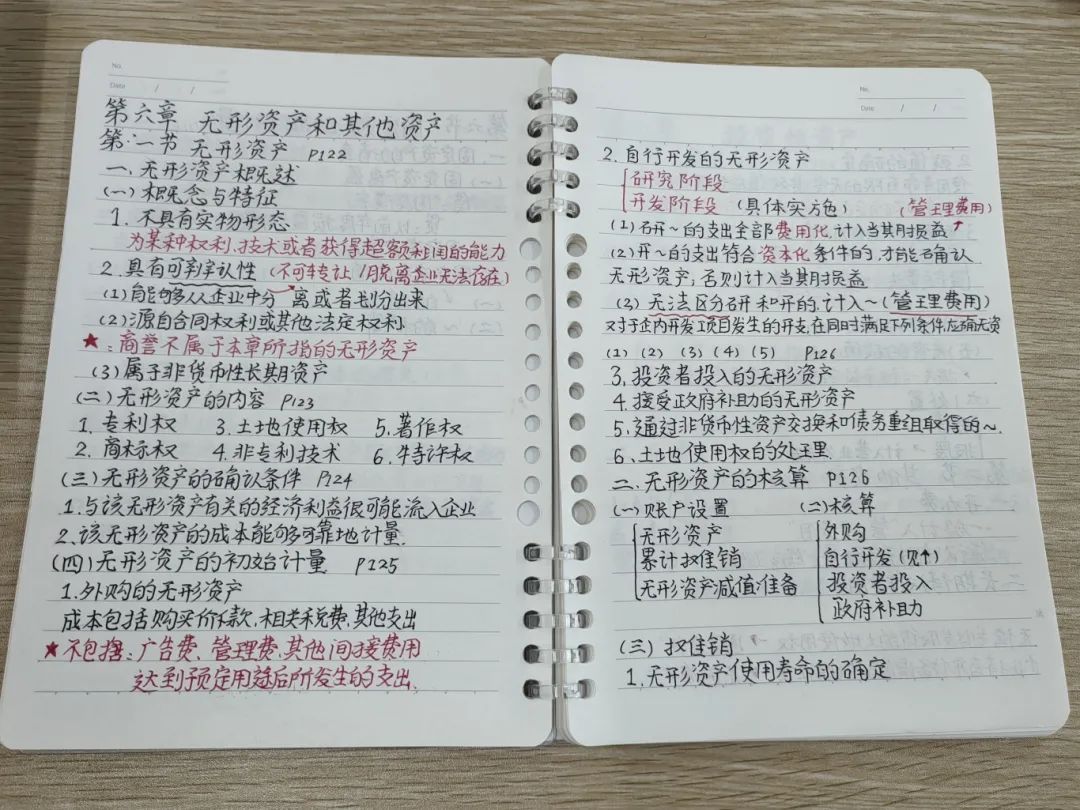 No.
Date / /
第六章 无形资产和其他资产
第一节 无形资产 P122
一、无形资产概述
(一)概念与特征
1.不具有实物形态
为某种权利、技术或者获得超额利润的能力
2.具有可辨认性(不可转让/脱离企业无法存在)
(1)能够从企业中分离或者划分出来
(2)源自合同权利或其他法定权利
★:商誉不属于本章所指的无形资产
(3)属于非货币性长期资产
(二)无形资产的内容 P123
1.专利权 3.土地使用权 5.著作权
2.商标权 4.非专利技术 6.特许权
(三)无形资产的确认条件 P124
1.与该无形资产有关的经济利益很可能流入企业
2.该无形资产的成本能够可靠地计量.
(四)无形资产的初始计量 P125
1.外购的无形资产
成本包括购买价款、相关税费、其他支出
★不包括:广告费、管理费、其他间接费用
达到预定用途后所发生的支出.
No.
Date / /
2.自行开发的无形资产
研究阶段
开发阶段 (具体实施) (管理费用)
(1)研~的支出全部费用化,计入当期损益↑
(2)开~的支出符合资本化条件的,才能确认
无形资产;否则计入当期损益
(3)无法区分研和开的,计入~(管理费用)
对于企内开发项目发生的开支,在同时满足下列条件,应确无资
(1) (2) (3) (4) (5) P126
3.投资者投入的无形资产
4.接受政府补助的无形资产
5.通过非货币性资产交换和债务重组取得的~.
6.土地使用权的处理
二、无形资产的核算 P126
(一)账户设置 (二)核算
无形资产 外购
累计摊销 自行开发(见↑)
无形资产减值准备 投资者投入
政府补助
(三)摊销
1.无形资产使用寿命的确定